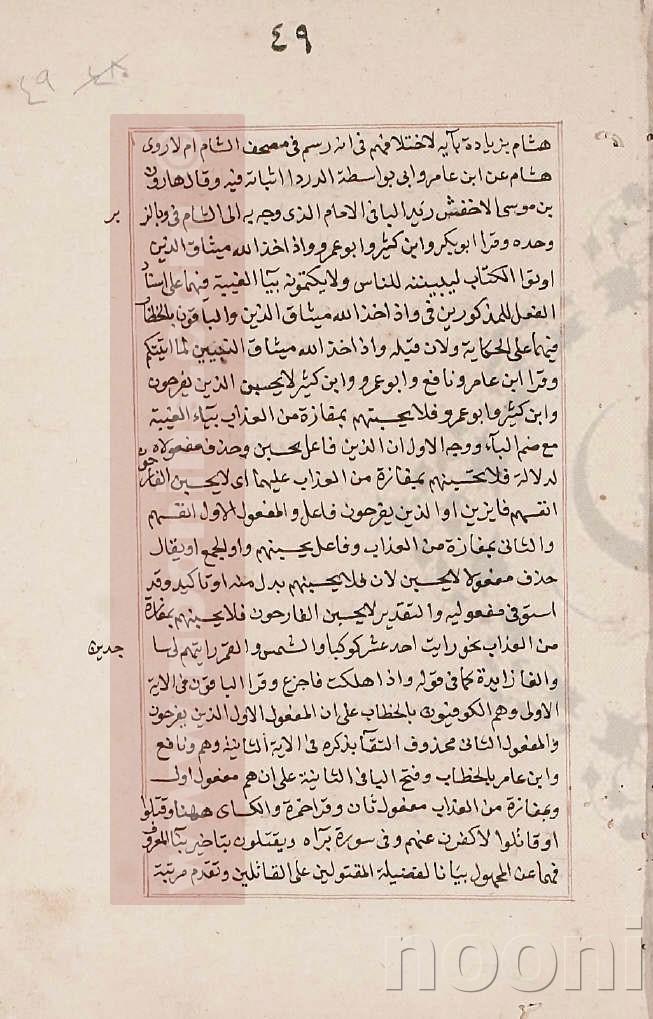 ٤٩
٤٩ ٤٨
هشام بزيادة بآيه لاختلافهم في انه رسم في مصحف الشام ام لا روى
هشام عن ابن عامر وابى بواسطة الدردا اثباته فيه وقال هارون
بن موسى الاخفش زيد البا في الامام الذى وجه به الى الشام في وبالز
بر
وحده وقرا ابو بكر وابن كثير وابو عمرو واذ اخذ الله ميثاق الذين
اوتوا الكتاب ليبيننه للناس ولا يكتمونه بيآ الغيبة فيهما على اسناد
الفعل للمذكورين في واذ اخذ الله ميثاق الذين والباقون بالخطاب
فيهما على الحكاية ولان قبله واذ اخذ الله ميثاق النبيين لما اتيتكم
وقرا ابن عامر ونافع وابو عمرو وابن كثير لا يحسبن الذين يفرحون
وابن كثير وابو عمرو فلا يحسبنهم بمفازة من العذاب بيآء الغيبة
مع ضم البآء ووجه الاول ان الذين فاعل يحسبن وحذف مفعولاه
لدلالة فلا يحسبنهم بمفازة من العذاب عليهما اى لا يحسبن الفارحون
انفسهم فايزين او الذين يفرحون فاعل والمفعول الاول انفسهم
والثانى بمفازة من العذاب وفاعل يحسبنهم واو الجمع او يقال
حذف مفعولا لا يحسبن لان فلا يحسبنهم بدل منه او تاكيد وقد
استوفى مفعوليه والتقدير لا يحسبن الفارحون فلا يحسبنهم بمفازة
من العذاب نحو رايت احد عشر كوكبا والشمس والقمر رايتهم لى سا
جدين
والفا زايدة كما في قوله واذا هلكت فاجزع وقرا الباقون في الاية
الاولى وهم الكوفيون بالخطاب على ان المفعول الاول الذين يفرحون
والمفعول الثانى محذوف التقآ بذكره في الاية الثانية وهم ونافع
وابن عامر بالخطاب وفتح البا في الثانية على ان هم مفعول اول
وبمفازة من العذاب مفعول ثان وقرا حمزة والكساى ههنا وقتلوا
او قاتلوا لاكفرن عنهم وفى سورة برآه ويقتلون بتاخير بنآ المعروف
فيهما عن المجهول بيانا لفضيلة المقتولين على القاتلين وتقدم مرتبة
nooni